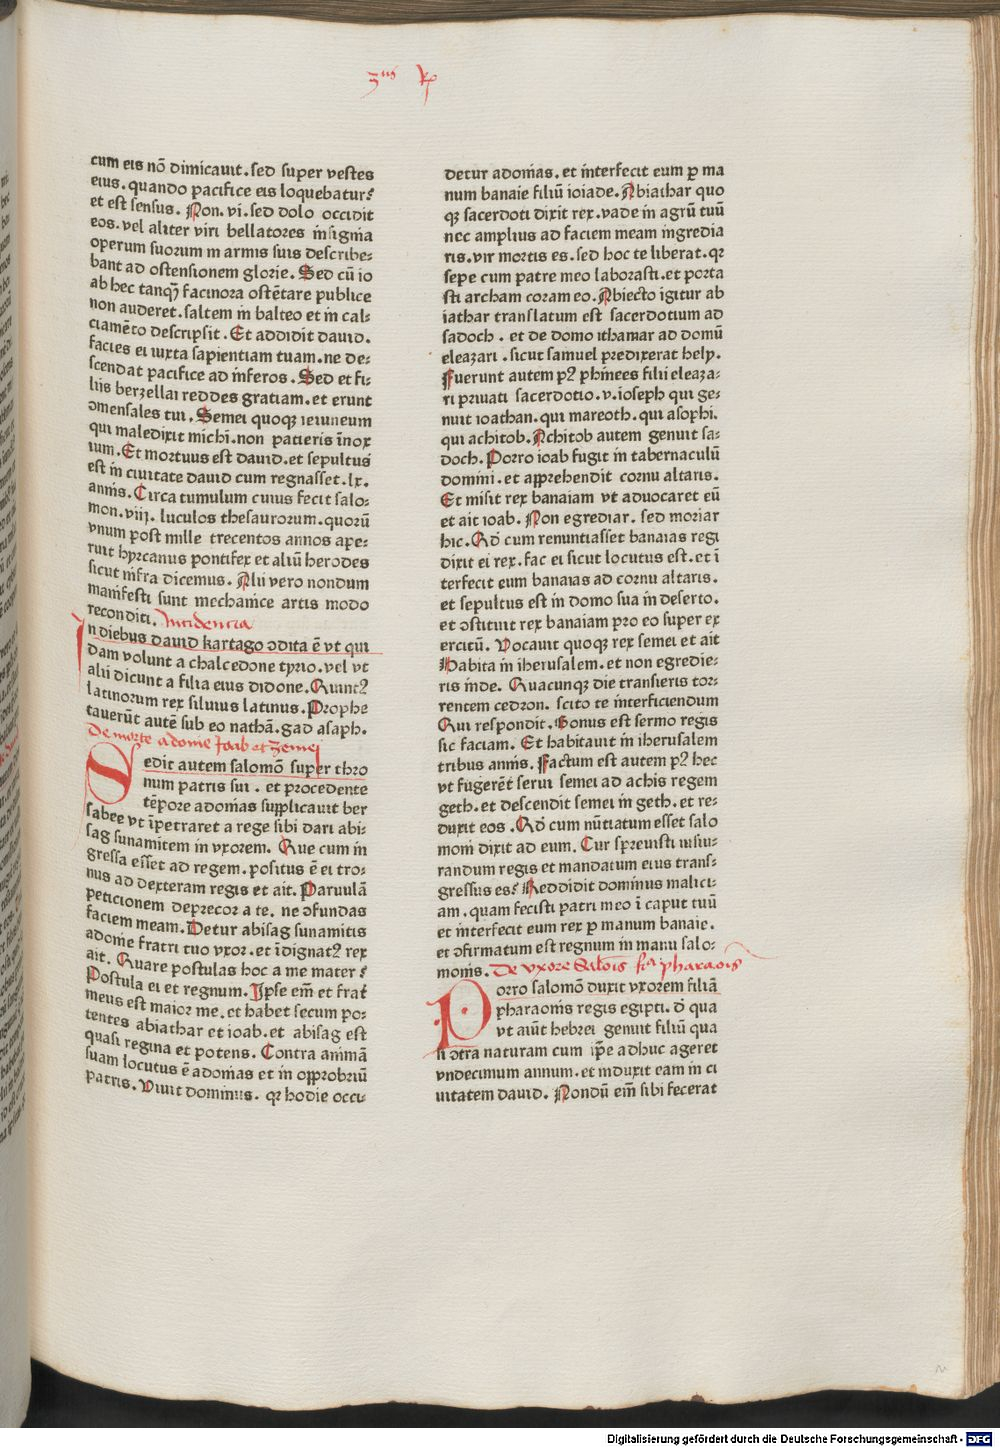 3us R
cum eis nō dimicauit. sed super vestes
eius. quando pacifice eis loquebatur?
et est sensus. Non. vi. sed dolo occidit
eos. vel aliter viri bellatores insignia
operum suorum in armis suis describe⸗
bant ad ostensionem glorie. Sed cū io
ab hec tanqȝ facinora ostētare publice
non auderet. saltem in balteo et in cal⸗
ciamēto descripsit. Et addidit dauid.
facies ei iuxta sapientiam tuam. ne de⸗
scendat pacifice ad inferos. Sed et fi⸗
liis berzellai reddes gratiam. et erunt
ɔmensales tui. Semei quoqȝ ieiuneum
qui maledixit michi. non patieris īnox
ium. Et mortuus est dauid. et sepultus
est in ciuitate dauid cum regnasset. lx.
annis. Circa tumulum cuius fecit salo⸗
mon. viij. luculos thesaurorum. quorū
vnum post mille trecentos annos ape⸗
ruit hyrcanus pontifex et aliū herodes
sicut infra dicemus. Alii vero nondum
manifesti sunt mechanice artis modo
reconditi. Incidentia
In diebus dauid kartago ɔdita ē vt qui
dam volunt a chalcedone tyrio. vel vt
alii dicunt a filia eius didone. Quintꝰ
latinorum rex siluius latinus. Prophe
tauerūt autē sub eo nathā. gad asaph.
De morte adonie Joab et Semej
Sedit autem salomō super thro
num patris sui. et procedente
tēpore adonias supplicauit ber
sabee vt īpetraret a rege sibi dari abi⸗
sag sunamitem in vxorem. Que cum in
gressa esset ad regem. positus ē ei tro⸗
nus ad dexteram regis et ait. Paruulā
peticionem deprecor a te. ne ɔfundas
faciem meam. Detur abisag sunamitis
adonie fratri tuo vxor. et īdignatꝰ rex
ait. Quare postulas hoc a me mater?
Postula ei et regnum. Ipse em̄ et frat̄
meus est maior me. et habet secum po⸗
tentes abiathar et ioab. et abisag est
quasi regina et potens. Contra animā
suam locutus ē adonias et in opprobriū
patris. Viuit dominus. qr hodie occi⸗
detur adonias. et interfecit eum ꝑ ma
num banaie filiū ioiade. Abiathar quo
qȝ sacerdoti dixit rex. vade in agrū tuū
nec amplius ad faciem meam ingredia
ris. vir mortis es. sed hoc te liberat. qr
sepe cum patre meo laborasti. et porta
sti archam coram eo. Abiecto igitur ab
iathar translatum est sacerdotium ad
sadoch. et de domo ithamar ad domū
eleazari. sicut samuel predixerat hely.
Fuerunt autem pꝰ phinees filii eleaza⸗
ri priuati sacerdotio. v. ioseph qui ge⸗
nuit ioathan. qui mareoth. qui asophi.
qui achitob. Achitob autem genuit sa⸗
doch. Porro ioab fugit in tabernaculū
domini. et apprehendit cornu altaris.
Et misit rex banaiam vt aduocaret eū
et ait ioab. Non egrediar. sed moriar
hic. Qd̄ cum renuntiasset banaias regi
dixit ei rex. fac ei sicut locutus est. et ī
terfecit eum banaias ad cornu altaris.
et sepultus est in domo sua in deserto.
et ɔstituit rex banaiam pro eo super ex
ercitū. Vocauit quoqȝ rex semei et ait
Habita in iherusalem. et non egredie⸗
ris inde. Quacunqȝ die transieris tor⸗
rentem cedron. scito te interficiendum
Qui respondit. Bonus est sermo regis
sic faciam. Et habitauit in iherusalem
tribus annis. Factum est autem pꝰ hec
vt fugerēt serui semei ad achis regem
geth. et descendit semei in geth. et re⸗
duxit eos. Qd̄ cum nūtiatum esset salo
moni dixit ad eum. Cur spreuisti iusiu⸗
randum regis et mandatum eius trans⸗
gressus es? Reddidit dominus malici⸗
am. quam fecisti patri meo ī caput tuū
et interfecit eum rex ꝑ manum banaie.
et ɔfirmatum est regnum in manu salo⸗
monis. De vxore Salōis fia pharaois
Porro salomō duxit vxorem filiā
pharaonis regis egipti. d̄ qua
vt aiūt hebrei genuit filiū qua
si ɔtra naturam cum ip̄e adhuc ageret
vndecimum annum. et induxit eam in ci
uitatem dauid. Nondū em̄ sibi fecerat
Digitalisierung gefördert durch die Deutsche Forschungsgemeinschaft - DFG